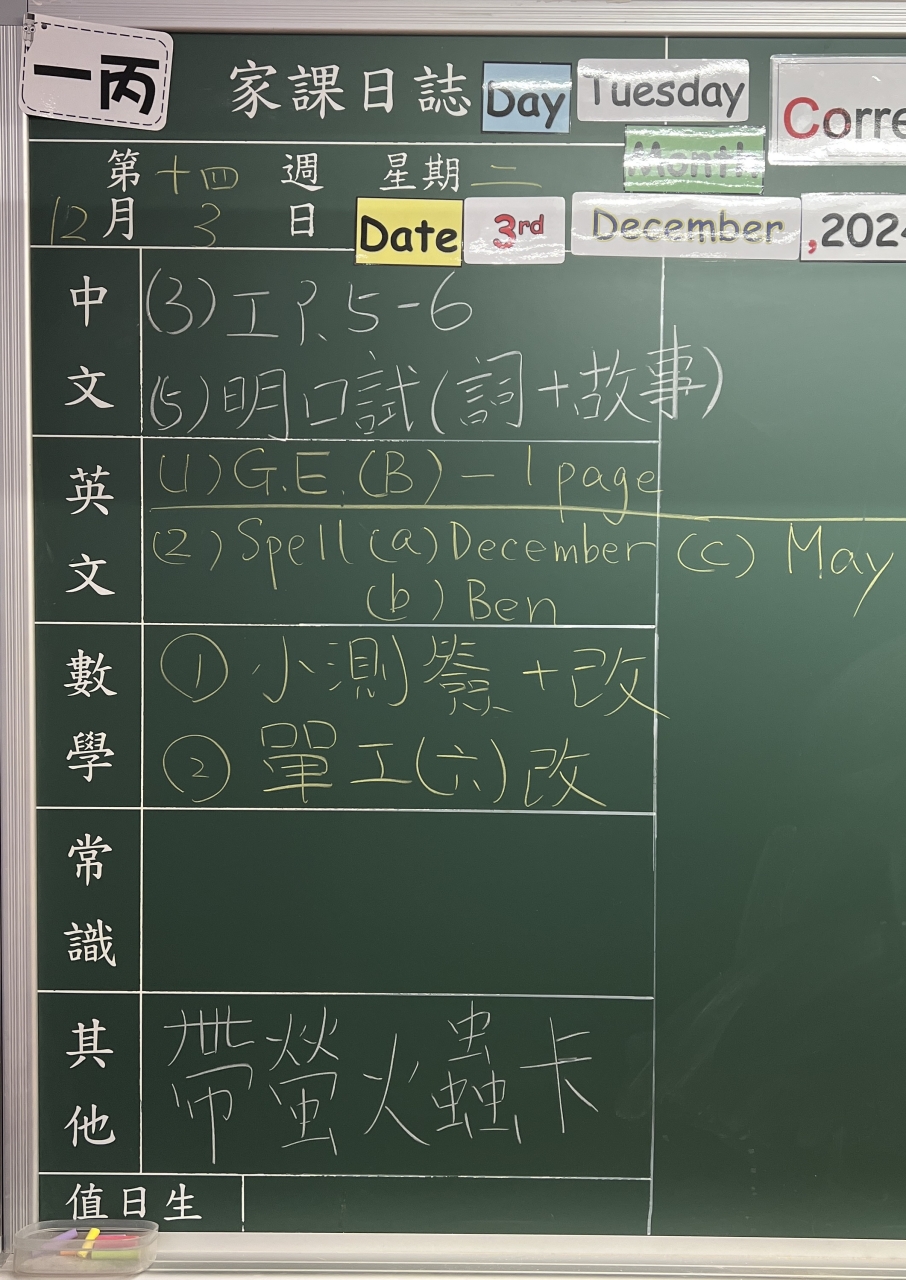 一丙
家課日誌 Day Tuesday Corre
Month
第十四週 星期二
12月3日 Date 3rd December ,2024
中文
(3) 工 P.5-6
(5) 明口試(詞+故事)
英文
(1) G.E.(B) - 1 page
(2) Spell (a) December (c) May
(b) Ben
數學
① 小測簽+改
② 單工(六)改
常識
其他
帶螢火蟲卡
值日生